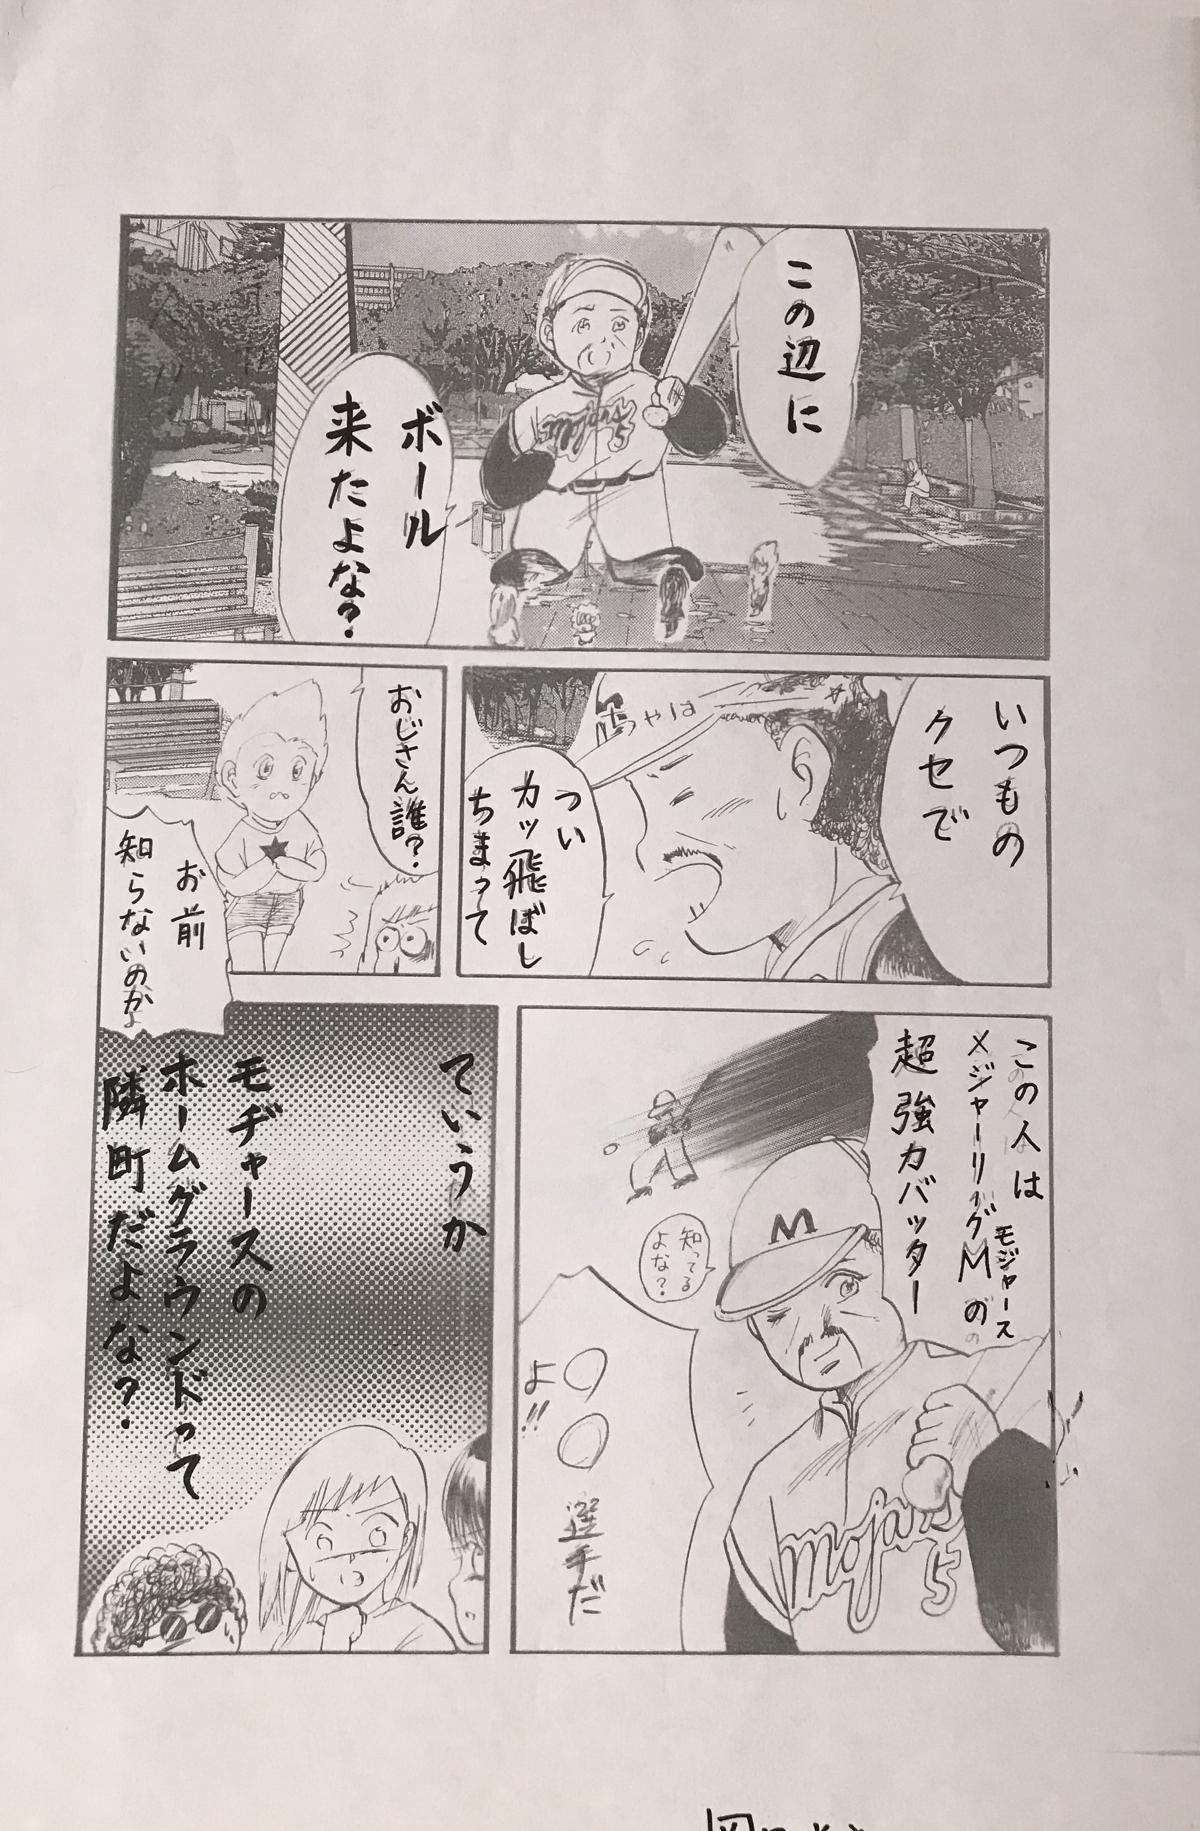 この辺に
ボール
来たよな?
5
いつもの
クセで
ちゃは
つい
カッ飛ばし
ちまって
おじさん誰?
お前
知らないのかよ
この人は
メジャーリーグMの
モジャース
超強力バッター
M
知ってる
よな?
mojars
5
〇〇選手だ
よ!!
ていうか
モヂャースの
ホームグラウンドって
隣町だよな?